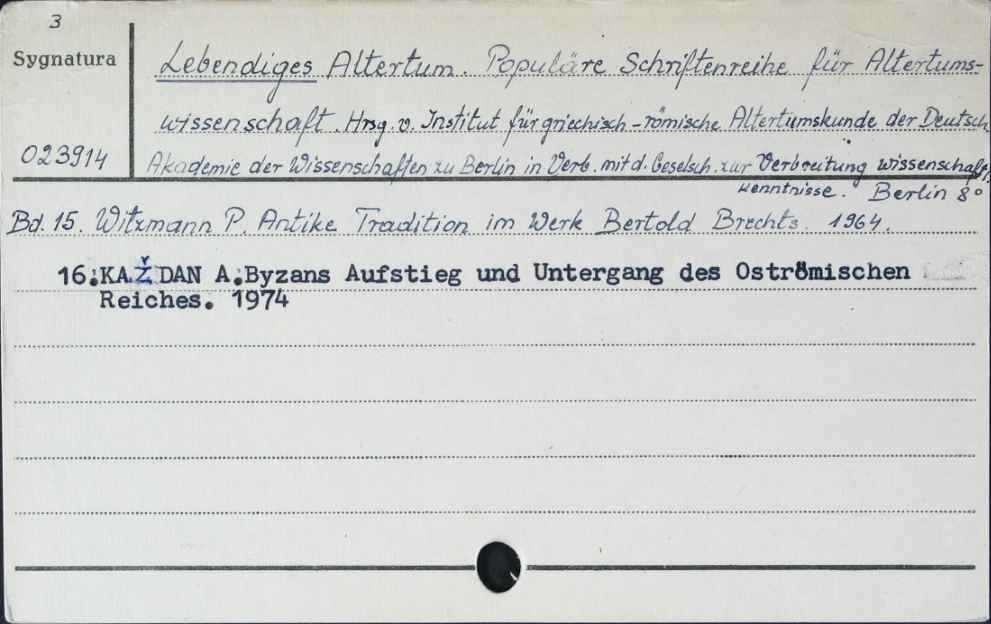 3
Sygnatura
023914
Lebendiges Altertum. Populäre Schriftenreihe für Altertums-
wissenschaft. Hrsg. v. Institut für griechisch-römische Altertumskunde der Deutsch.
Akademie der Wissenschaften zu Berlin in Verb. mit d. Geselsch. zur Verbreitung wissenschaft.
Kenntnisse. Berlin 8°
Bd. 15. Witzmann P. Antike Tradition im Werk Bertold Brechts. 1964.
16.KAŽDAN A.Byzans Aufstieg und Untergang des Oströmischen
Reiches. 1974